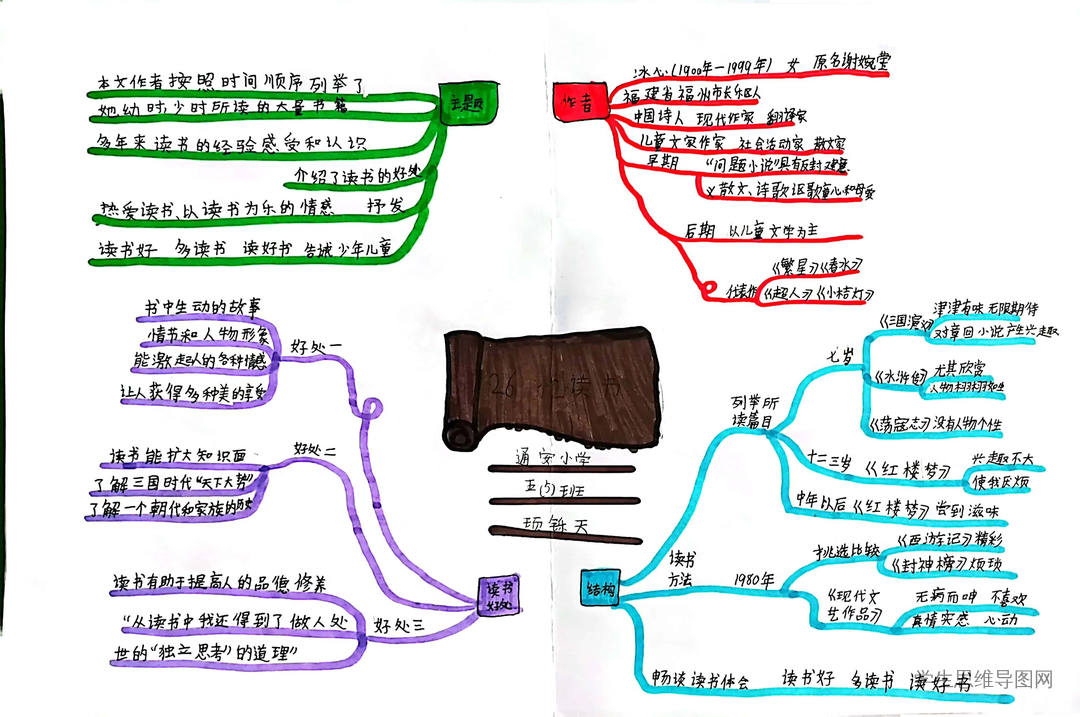 主题
本文作者按照时间顺序列举了
她幼时,少时所读的大量书籍
多年来读书的经验感受和认识
介绍了读书的好处
热爱读书、以读书为乐的情感 抒发
读书好 多读书 读好书 告诫少年儿童
作者
冰心(1900年一1999年) 女 原名谢婉莹
福建省福州市长乐区人
中国诗人 现代作家 翻译家
儿童文家作家 社会活动家 散文家
早期 "问题小说"具有反封建意
散文、诗歌讴歌童心和母爱
后期 以儿童文学为主
代表作
《繁星》《春水》
《超人》《小桔灯》
26
通安小学
五(5)班
好处一
书中生动的故事
情节和人物形象
能激起人的各种情感
让人获得多种美的享受
好处二
读书能扩大知识面
了解三国时代"天下大势"
了解一个朝代和家族的历史
读书
好处
好处三
读书有助于提高人的品德修养
"从读书中我还得到了做人处
世的"独立思考"的道理"
结构
列举所
读篇目
七岁
《三国演义》
津津有味 无限期待
对章回小说产生兴趣
《水浒传》
尤其欣赏
人物栩栩如生
《荡寇志》没有人物个性
十二三岁 《红楼梦》
兴趣不大
使我厌烦
中年以后《红楼梦》尝到滋味
读书
方法
1980年
挑选比较
《西游记》精彩
《封神榜》烦琐
《现代文
艺作品》
无病而呻 不喜欢
真情实感 心动
畅谈读书体会 读书好 多读书 读好书
学生思维导图网